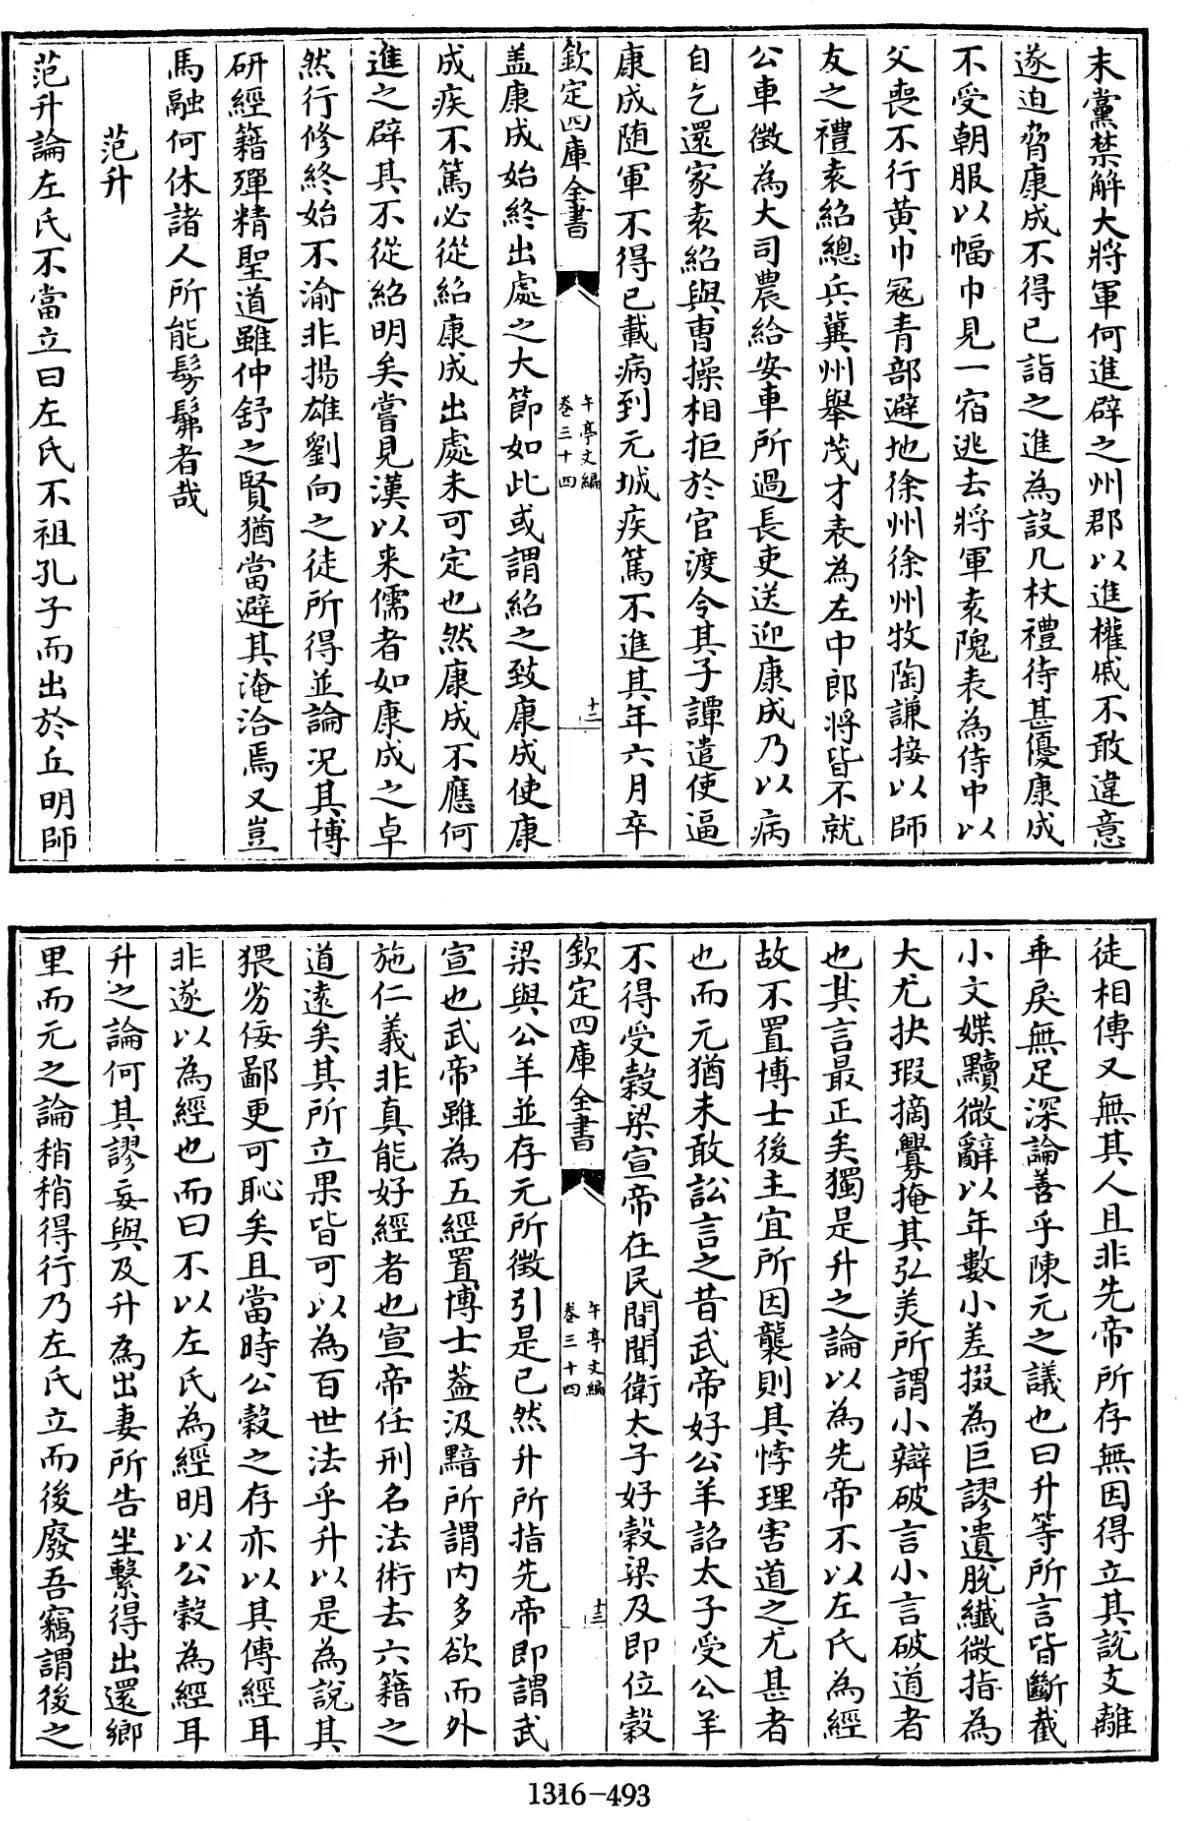 末黨禁解大將軍何進辟之州郡以進權戚不敢違意
遂迫脅康成不得已詣之進為設几杖禮待甚優康成
不受朝服以幅巾見一宿逃去將軍袁隗表為侍中以
父喪不行黄巾冦青部避地徐州徐州牧陶謙接以師
友之禮袁紹總兵冀州舉茂才表為左中郎將皆不就
公車徵為大司農給安車所過長吏送迎康成乃以病
自乞還家袁紹與曹操相拒於官渡令其子譚遣使逼
康成隨軍不得已載病到元城疾篤不進其年六月卒
欽定四庫全書
午亭文編
卷三十四
十二
盖康成始終出處之大節如此或謂紹之致康成使康
成疾不篤必從紹康成出處未可定也然康成不應何
進之辟其不從紹明矣嘗見漢以来儒者如康成之卓
然行修終始不渝非揚雄劉向之徒所得並論况其博
研經籍殫精聖道雖仲舒之賢猶當避其淹洽焉又豈
馬融何休諸人所能髣髴者哉
范升
范升論左氏不當立曰左氏不祖孔子而出於丘明師
徒相傳又無其人且非先帝所存無因得立其說支離
乖戾無足深論善乎陳元之議也曰升等所言皆斷截
小文媟黷微辭以年數小差掇為巨謬遺脫纎微指為
大尤抉瑕摘釁掩其弘美所謂小辯破言小言破道者
也其言最正矣獨是升之論以為先帝不以左氏為經
故不置博士後主宜所因襲則其悖理害道之尤甚者
也而元猶未敢訟言之昔武帝好公羊詔太子受公羊
不得受穀梁宣帝在民間聞衛太子好穀梁及即位穀
欽定四庫全書
午亭文編
卷三十四
十三
梁與公羊並存元所徵引是已然升所指先帝即謂武
宣也武帝雖為五經置博士葢汲黯所謂内多欲而外
施仁義非真能好經者也宣帝任刑名法術去六籍之
道遠矣其所立果皆可以為百世法乎升以是為說其
猥劣佞鄙更可恥矣且當時公穀之存亦以其傳經耳
非遂以為經也而曰不以左氏為經明以公穀為經耳
升之論何其謬妄與及升為出妻所告坐繫得出還鄉
里而元之論稍稍得行乃左氏立而後廢吾竊謂後之
1316-493